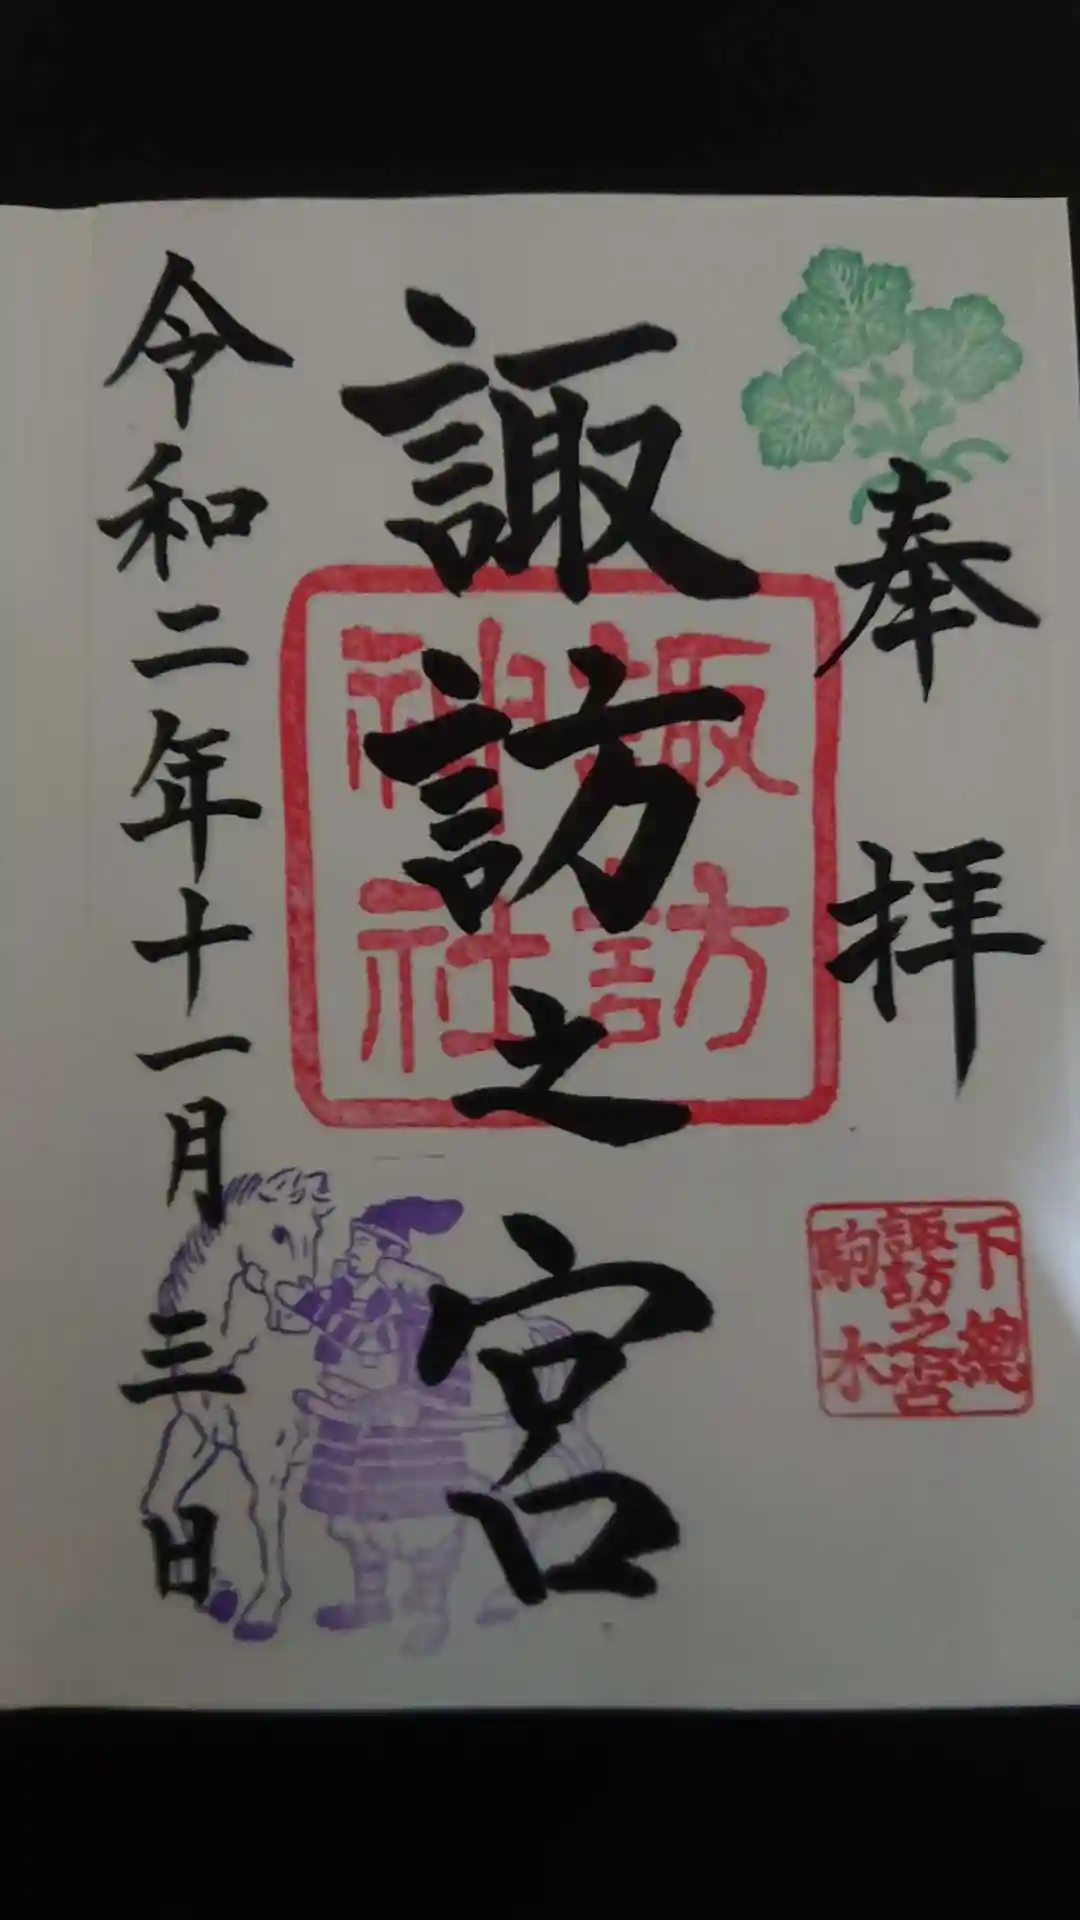 奉拝
下總
諏訪之宮
駒木
諏訪之宮
諏訪
神社
令和二年十一月三日